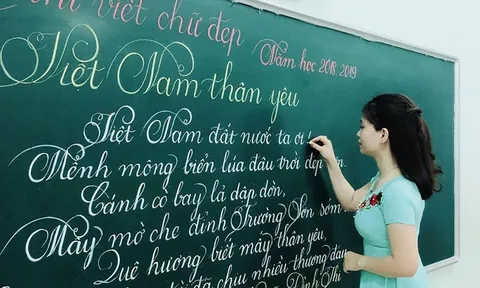 thi viết chữ đẹp
Năm học 2018-2019
Việt Nam thân yêu
Việt Nam đất nước ta ơi
Mênh mông biển lúa đâu trời đẹp
Cánh cò bay lả dập dờn,
Mây mờ che đỉnh Trường Sơn sớm
Quê hương biết mấy thân yêu,
đã chịu nhiều thương đau
Đình Thi